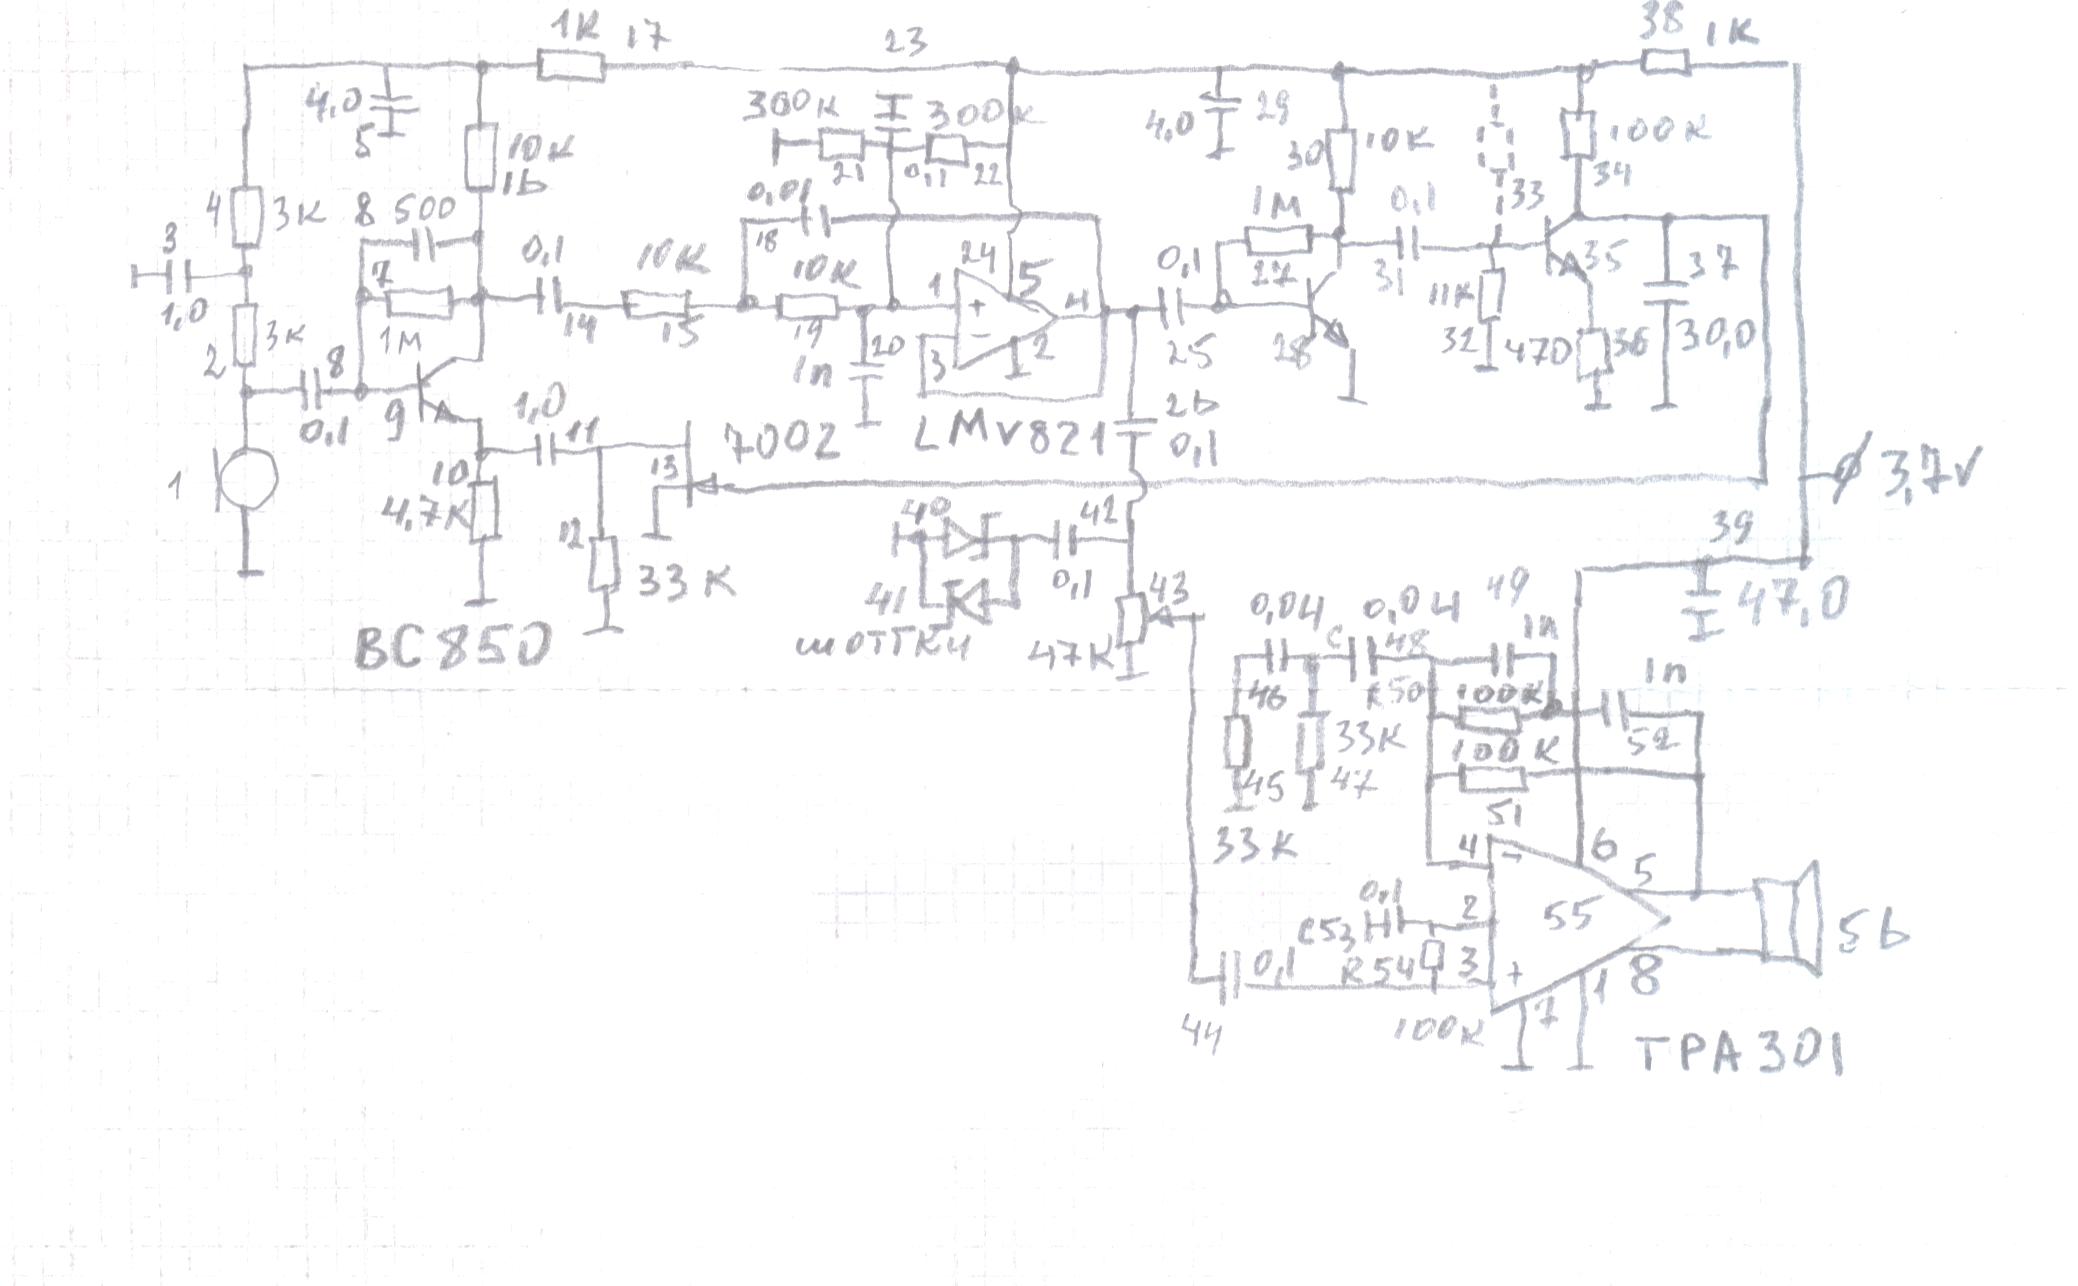 1К 17
23
38 1К
4,0
5
10К
16
300К
300К
21
0,1
22
4,0
29
30
10К
100К
34
33
4
3К
8 500
3
1,0
7
1М
2
3К
0,1
14
10К
15
0,01
18
10К
19
20
1п
1
24
5
4
+
-
3
2
0,1
25
1М
27
28
0,1
31
11К
32
470
36
35
37
30,0
8
0,1
9
1
10
4,7К
1,0
11
12
33К
13
7002
LMV821
26
0,1
3,7V
39
47,0
BC850
40
41
шоттки
42
0,1
43
47К
0,04
46
0,04
С 48
49
1п
R50
100К
100К
51
1п
52
45
33К
33К
47
4
-
6
5
0,1
С53
2
R54
3
+
55
56
0,1
44
100К
7
1
8
TPA301